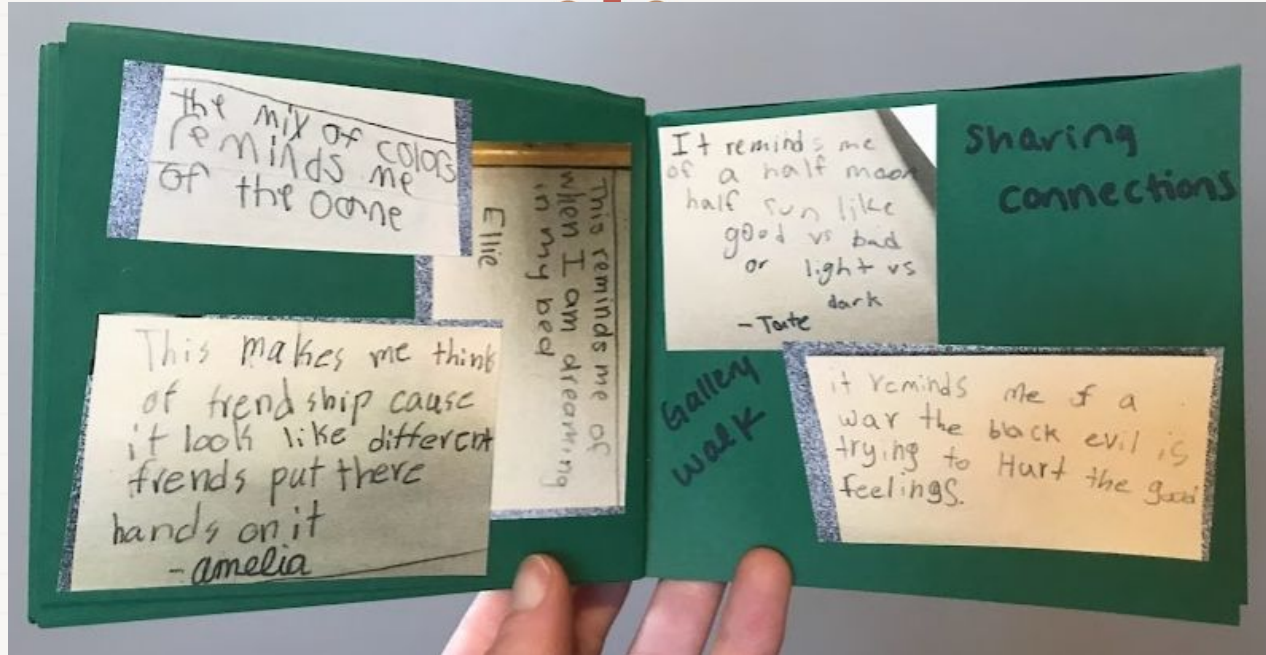 the mix of colors
reminds me
of the ocnne
This reminds me of
when I am dreaming
in my bed
Ellie
This makes me think
of frendship cause
it look like different
frends put there
hands on it
- amelia
It reminds me
of a half moon
half sun like
good vs bad
or light vs
dark
- Tate
Sharing
connections
Gallery
walk
it reminds me of a
war the black evil is
trying to Hurt the good
feelings.